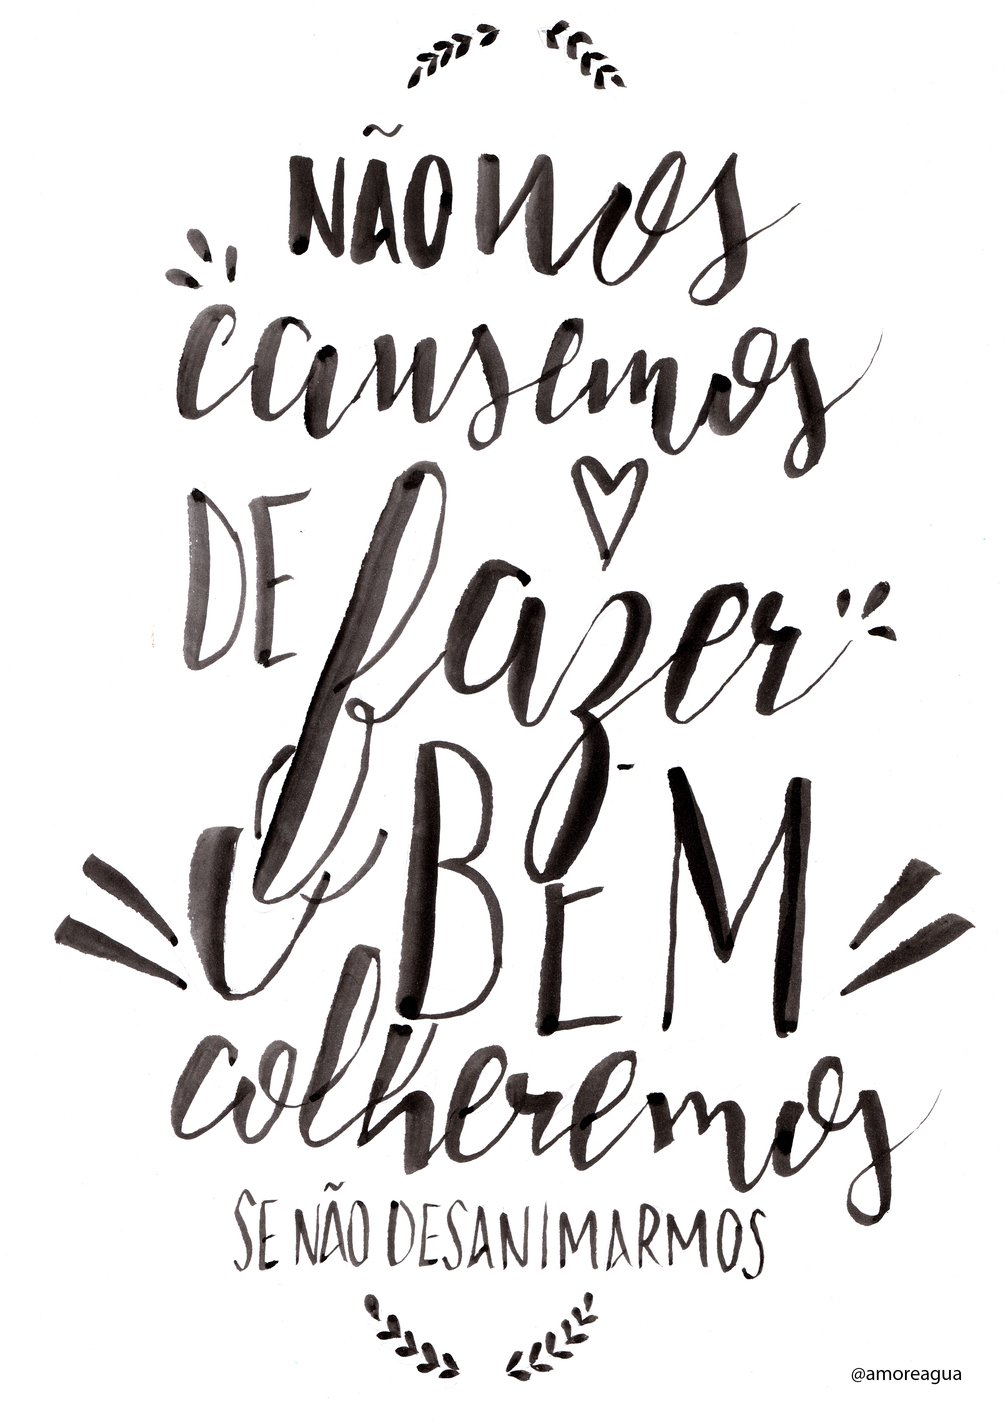 NÃO nos
cansemos
DE fazer
O BEM
colheremos
SE NÃO DESANIMARMOS
@amoreagua